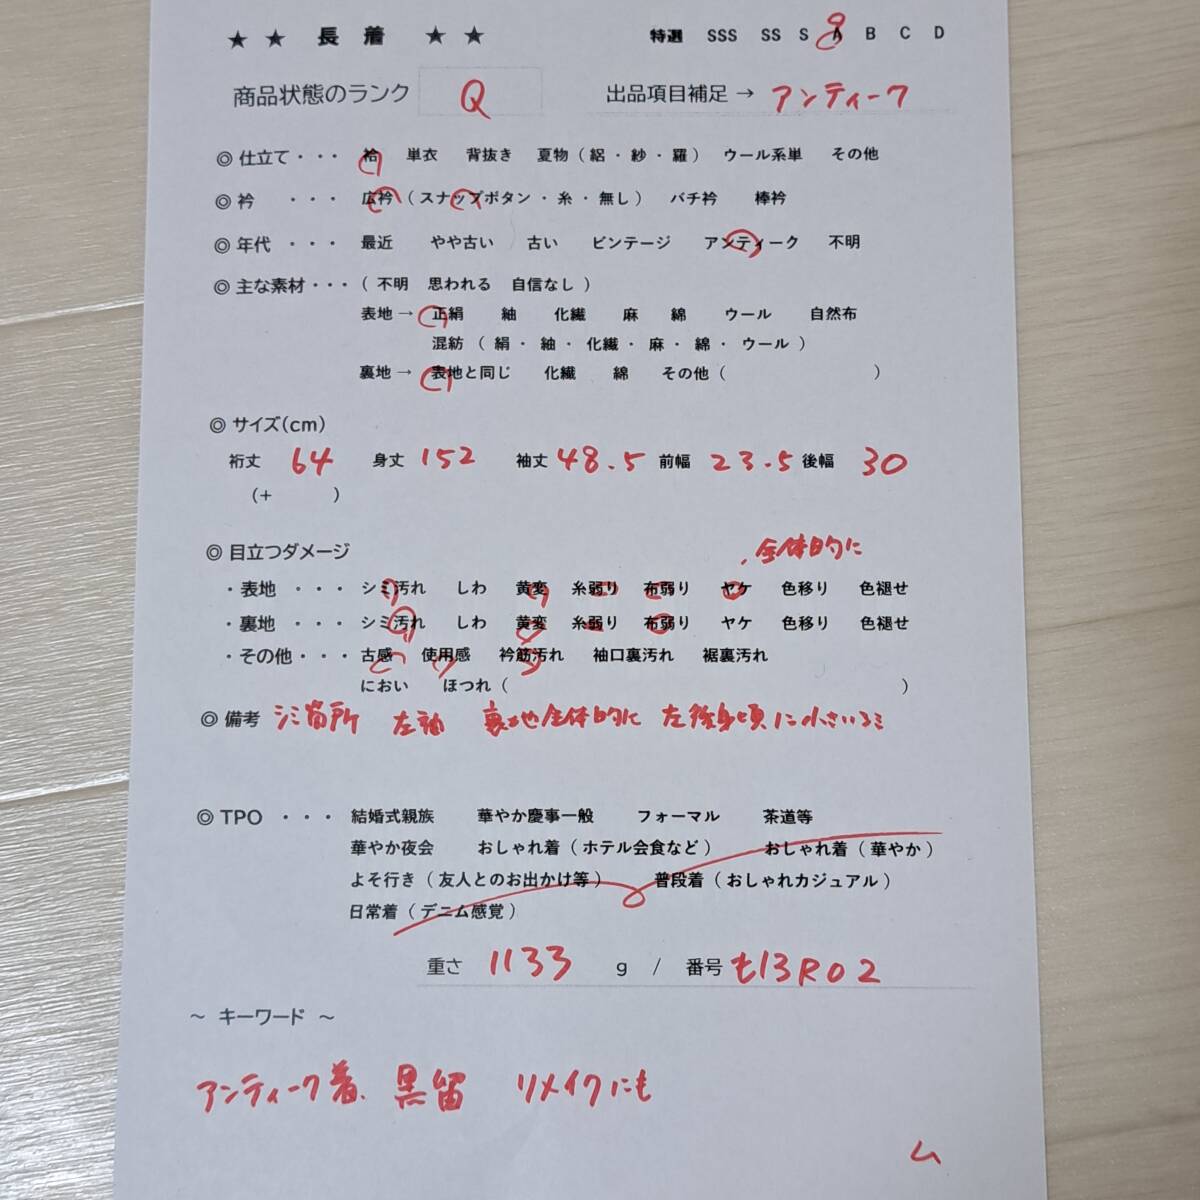 ★ ★ 長 着 ★ ★ 特選 SSS SS S A B C D
商品状態のランク Q 出品項目補足 → アンティーク
◎ 仕立て・・・ 袷 単衣 背抜き 夏物 ( 絽 ・ 紗 ・ 羅 ) ウール系単 その他
◎ 衿 ・・・ 広衿 ( スナップボタン ・ 糸 ・ 無し ) バチ衿 棒衿
◎ 年代 ・・・ 最近 やや古い 古い ビンテージ アンティーク 不明
◎ 主な素材・・・ ( 不明 思われる 自信なし )
表地 → 正絹 紬 化繊 麻 綿 ウール 自然布
混紡 ( 絹 ・ 紬 ・ 化繊 ・ 麻 ・ 綿 ・ ウール )
裏地 → 表地と同じ 化繊 綿 その他 ( )
◎ サイズ(cm)
裄丈 64 身丈 152 袖丈 48.5 前幅 23.5 後幅 30
(+ )
◎ 目立つダメージ 全体的に
・表地 ・・・ シミ汚れ しわ 黄変 糸弱り 布弱り ヤケ 色移り 色褪せ
・裏地 ・・・ シミ汚れ しわ 黄変 糸弱り 布弱り ヤケ 色移り 色褪せ
・その他・・・ 古感 使用感 衿筋汚れ 袖口裏汚れ 裾裏汚れ
におい ほつれ ( )
◎ 備考 シミ箇所 左袖 裏地全体的に 左後身頃に小さいシミ
◎ TPO ・・・ 結婚式親族 華やか慶事一般 フォーマル 茶道等
華やか夜会 おしゃれ着 ( ホテル会食など ) おしゃれ着 ( 華やか )
よそ行き ( 友人とのお出かけ等 ) 普段着 ( おしゃれカジュアル )
日常着 ( デニム感覚 )
重さ 1133 g / 番号 t13R02
～ キーワード ～
アンティーク着、黒留 リメイクにも
ム